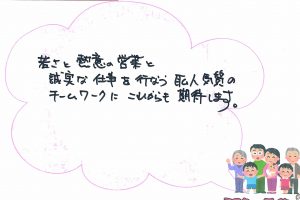 若さと熱意の営業と
誠実な仕事を行なう職人気質の
チームワークにこれからも期待します。